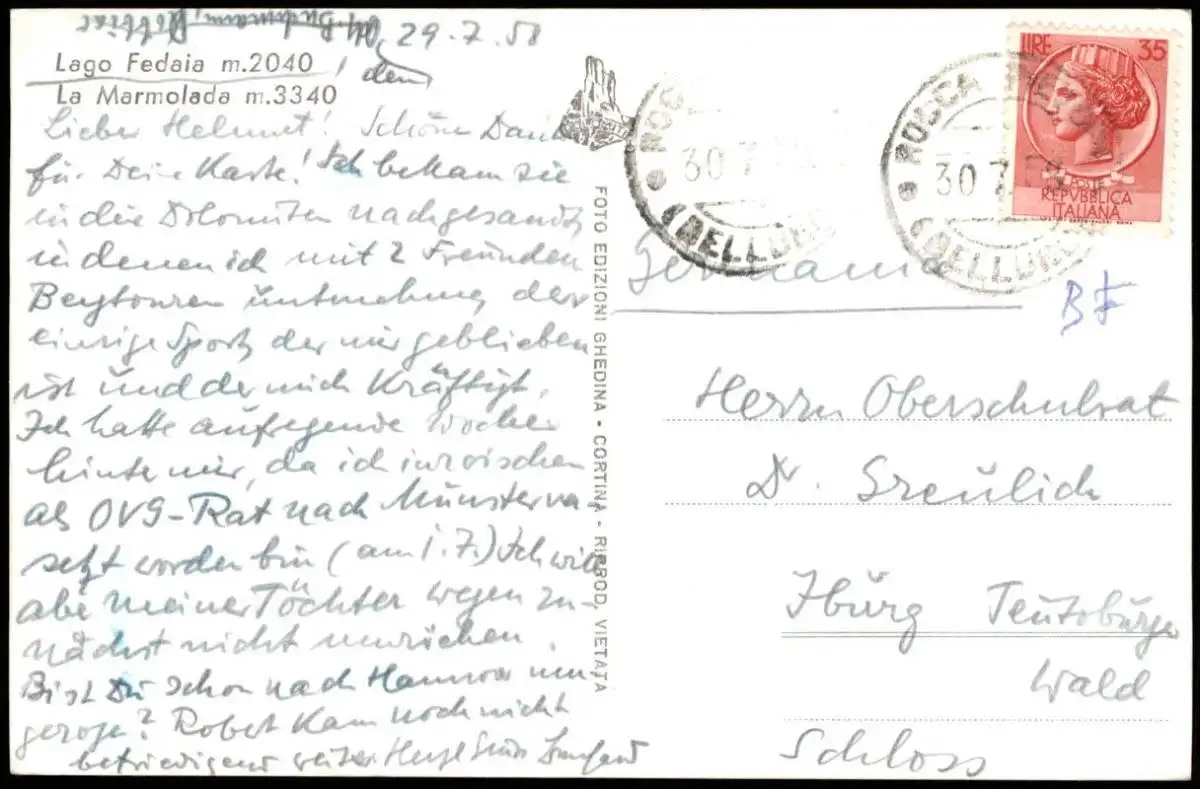 29.7.58
Lago Fedaia m.2040
den
La Marmolada m.3340
Lieber Helmut! Schöne Dank
für Deine Karte! Ich bekam sie
in die Dolomiten nachgesandt,
in denen ich mit 2 Freunden
Bergtouren unternehme, der
einzige Sport, der mir geblieben
ist und der mich kräftigt.
Ich hatte aufregende Wochen
hinter mir, da ich inzwischen
als OVG-Rat nach Münster ver-
setzt worden bin (am 1.7.) Ich will
aber meiner Töchter wegen zu-
nächst nicht umziehen.
Bist Du schon nach Hannover um-
gezogen? Robert kam noch nicht
befriedigend weiter Herzl
FOTO EDIZIONI GHEDINA - CORTINA - RIPROD. VIETATA
ROCCA
30 7
(BELLUNO
ROCCA
30 7
(BELLUNO
LIRE 35
POSTE
REPVBBLICA
ITALIANA
Germania
BF
Herrn Oberschulrat
Dr. Greulich
Iburg Teutoburger
Wald
Schloss